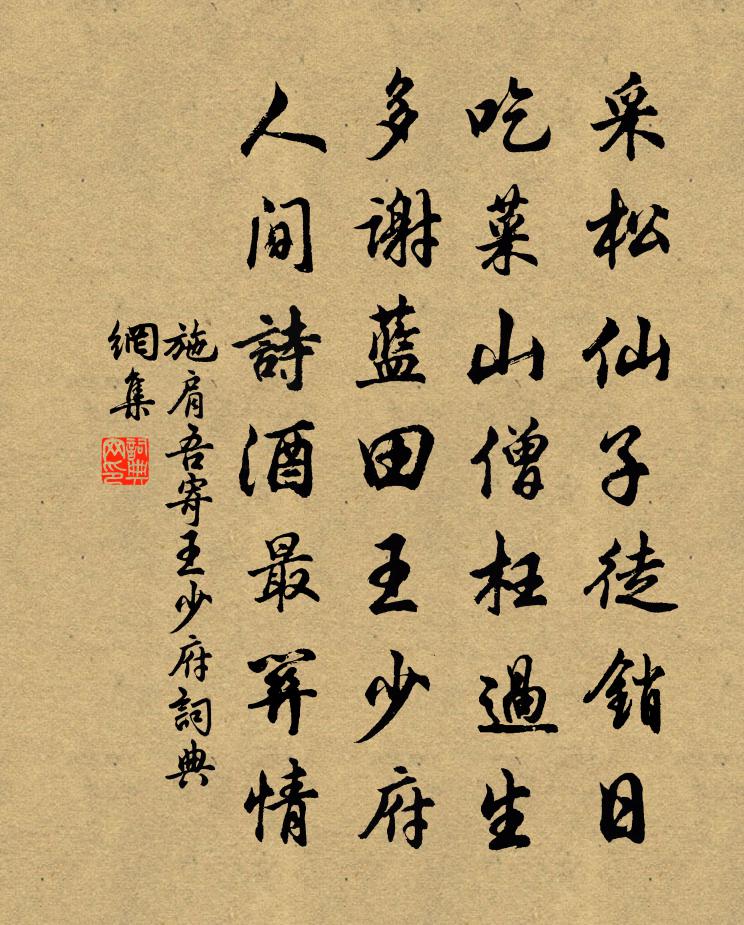 采松仙子徒銷日
吃菜山僧枉過生
多謝藍田王少府
人間詩酒最關情
施肩吾寄王少府詞典
網集
詞典
网印